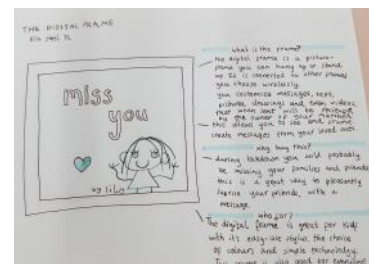 THE DIGITAL FRAME
miss
you
by lilo
what is the frame?
the digital frame is a picture-
frame you can hang up or stand
up. It is connected to other frames
you choose wirelessly.
you customise messages, text,
pictures, drawings and even videos,
that when sent will be received
by the owner of your
this allows you to see and
create messages from your loved ones.
why buy this?
during lockdown you will probably
be missing your families and friends
this is a great way to pleasantly
surprise your friends, with a
message.
who for?
The digital frame is great for kids
with its easy-use stylus, the choice
of colours and simple technology.
The frame is also good for everyone